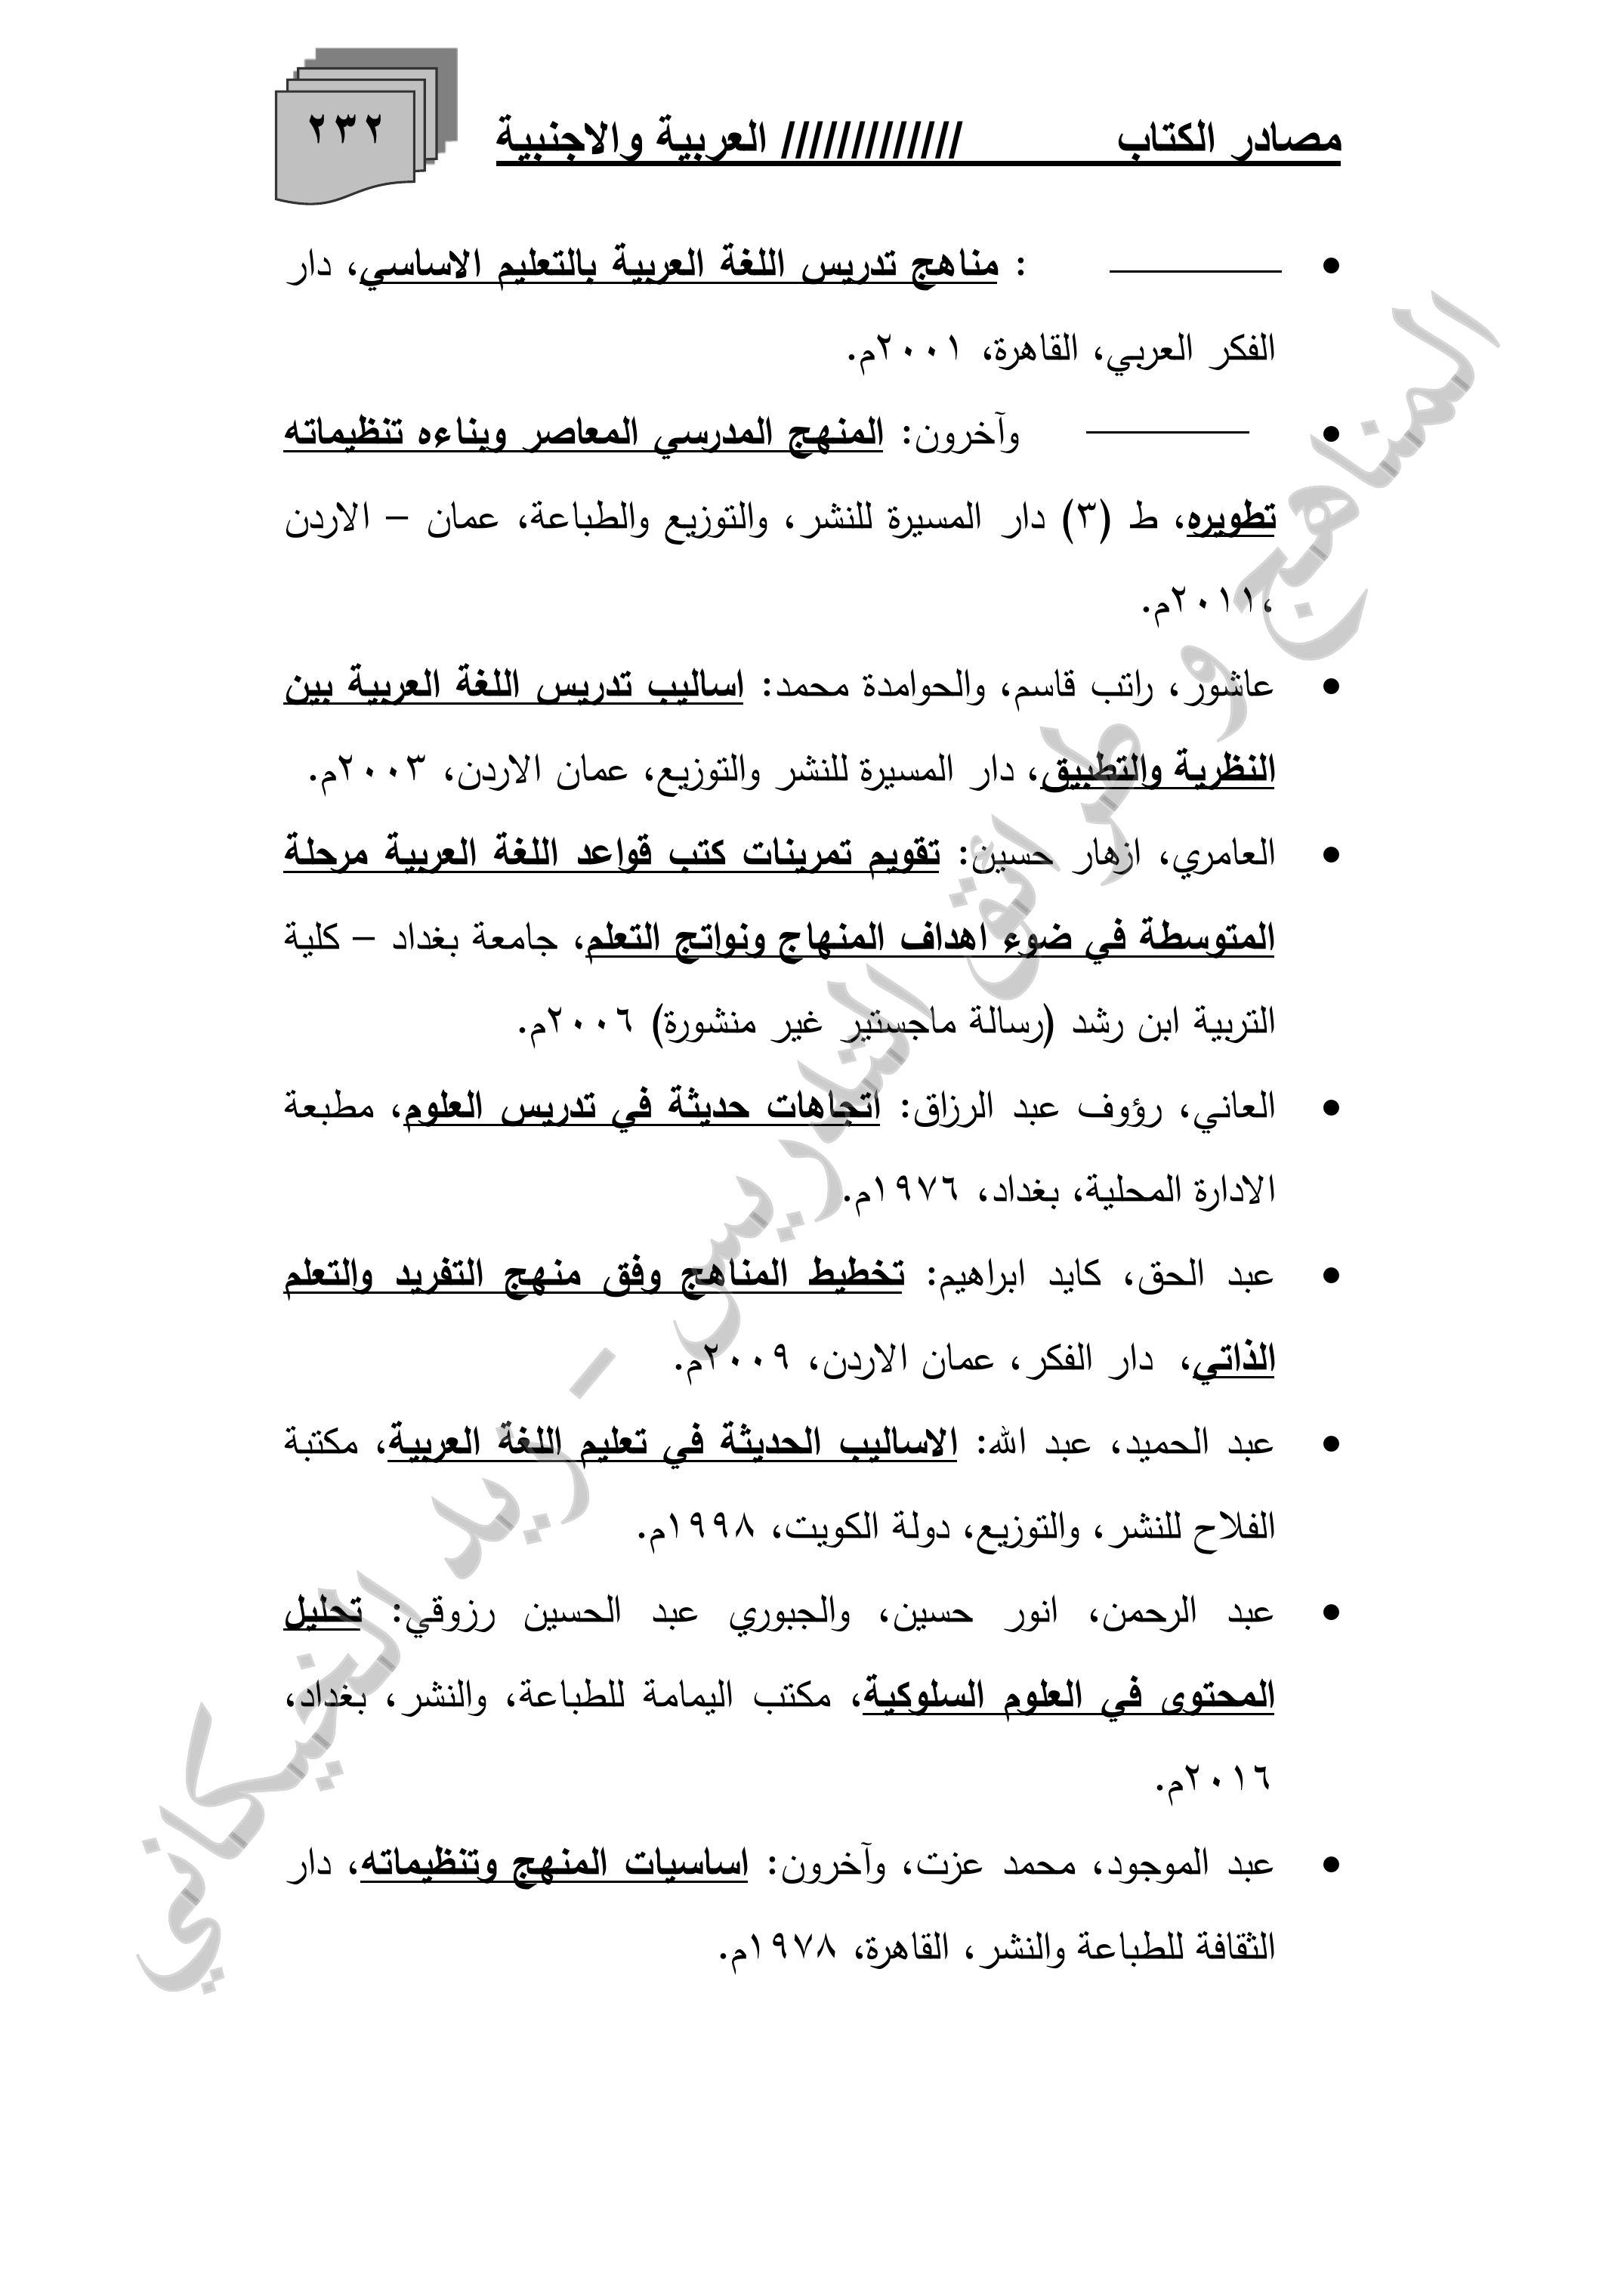 مصادر الكتاب ///////////// العربية والاجنبية
٢٣٢
• ــــــــــــ : مناهج تدريس اللغة العربية بالتعليم الاساسي، دار
الفكر العربي، القاهرة، ٢٠٠١م.
• ــــــــــــ وآخرون: المنهج المدرسي المعاصر وبناءه تنظيماته
تطويره، ط (٣) دار المسيرة للنشر، والتوزيع والطباعة، عمان – الاردن
،٢٠١١م.
• عاشور، راتب قاسم، والحوامدة محمد: اساليب تدريس اللغة العربية بين
النظرية والتطبيق، دار المسيرة للنشر والتوزيع، عمان الاردن، ٢٠٠٣م.
• العامري، ازهار حسين: تقويم تمرينات كتب قواعد اللغة العربية مرحلة
المتوسطة في ضوء اهداف المنهاج ونواتج التعلم، جامعة بغداد – كلية
التربية ابن رشد (رسالة ماجستير غير منشورة) ٢٠٠٦م.
• العاني، رؤوف عبد الرزاق: اتجاهات حديثة في تدريس العلوم، مطبعة
الادارة المحلية، بغداد، ١٩٧٦م.
• عبد الحق، كايد ابراهيم: تخطيط المناهج وفق منهج التفريد والتعلم
الذاتي، دار الفكر، عمان الاردن، ٢٠٠٩م.
• عبد الحميد، عبد الله: الاساليب الحديثة في تعليم اللغة العربية، مكتبة
الفلاح للنشر، والتوزيع، دولة الكويت، ١٩٩٨م.
• عبد الرحمن، انور حسين، والجبوري عبد الحسين رزوقي: تحليل
المحتوى في العلوم السلوكية، مكتب اليمامة للطباعة، والنشر، بغداد،
٢٠١٦م.
• عبد الموجود، محمد عزت، وآخرون: اساسيات المنهج وتنظيماته، دار
الثقافة للطباعة والنشر، القاهرة، ١٩٧٨م.
المناهج و طرائق التدريس - زيد الخيكاني